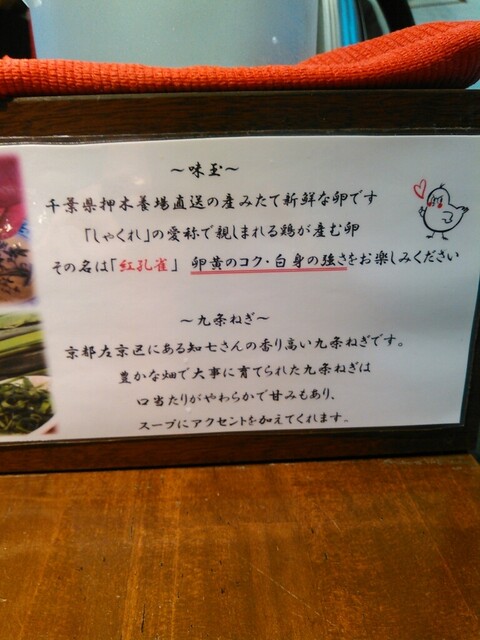 ～味玉～
千葉県押木養場直送の産みたて新鮮な卵です
「しゃくれ」の愛称で親しまれる鶏が産む卵
その名は「紅孔雀」 卵黄のコク・白身の強さをお楽しみください
～九条ねぎ～
京都左京区にある知七さんの香り高い九条ねぎです。
豊かな畑で大事に育てられた九条ねぎは
口当たりがやわらかで甘みもあり、
スープにアクセントを加えてくれます。